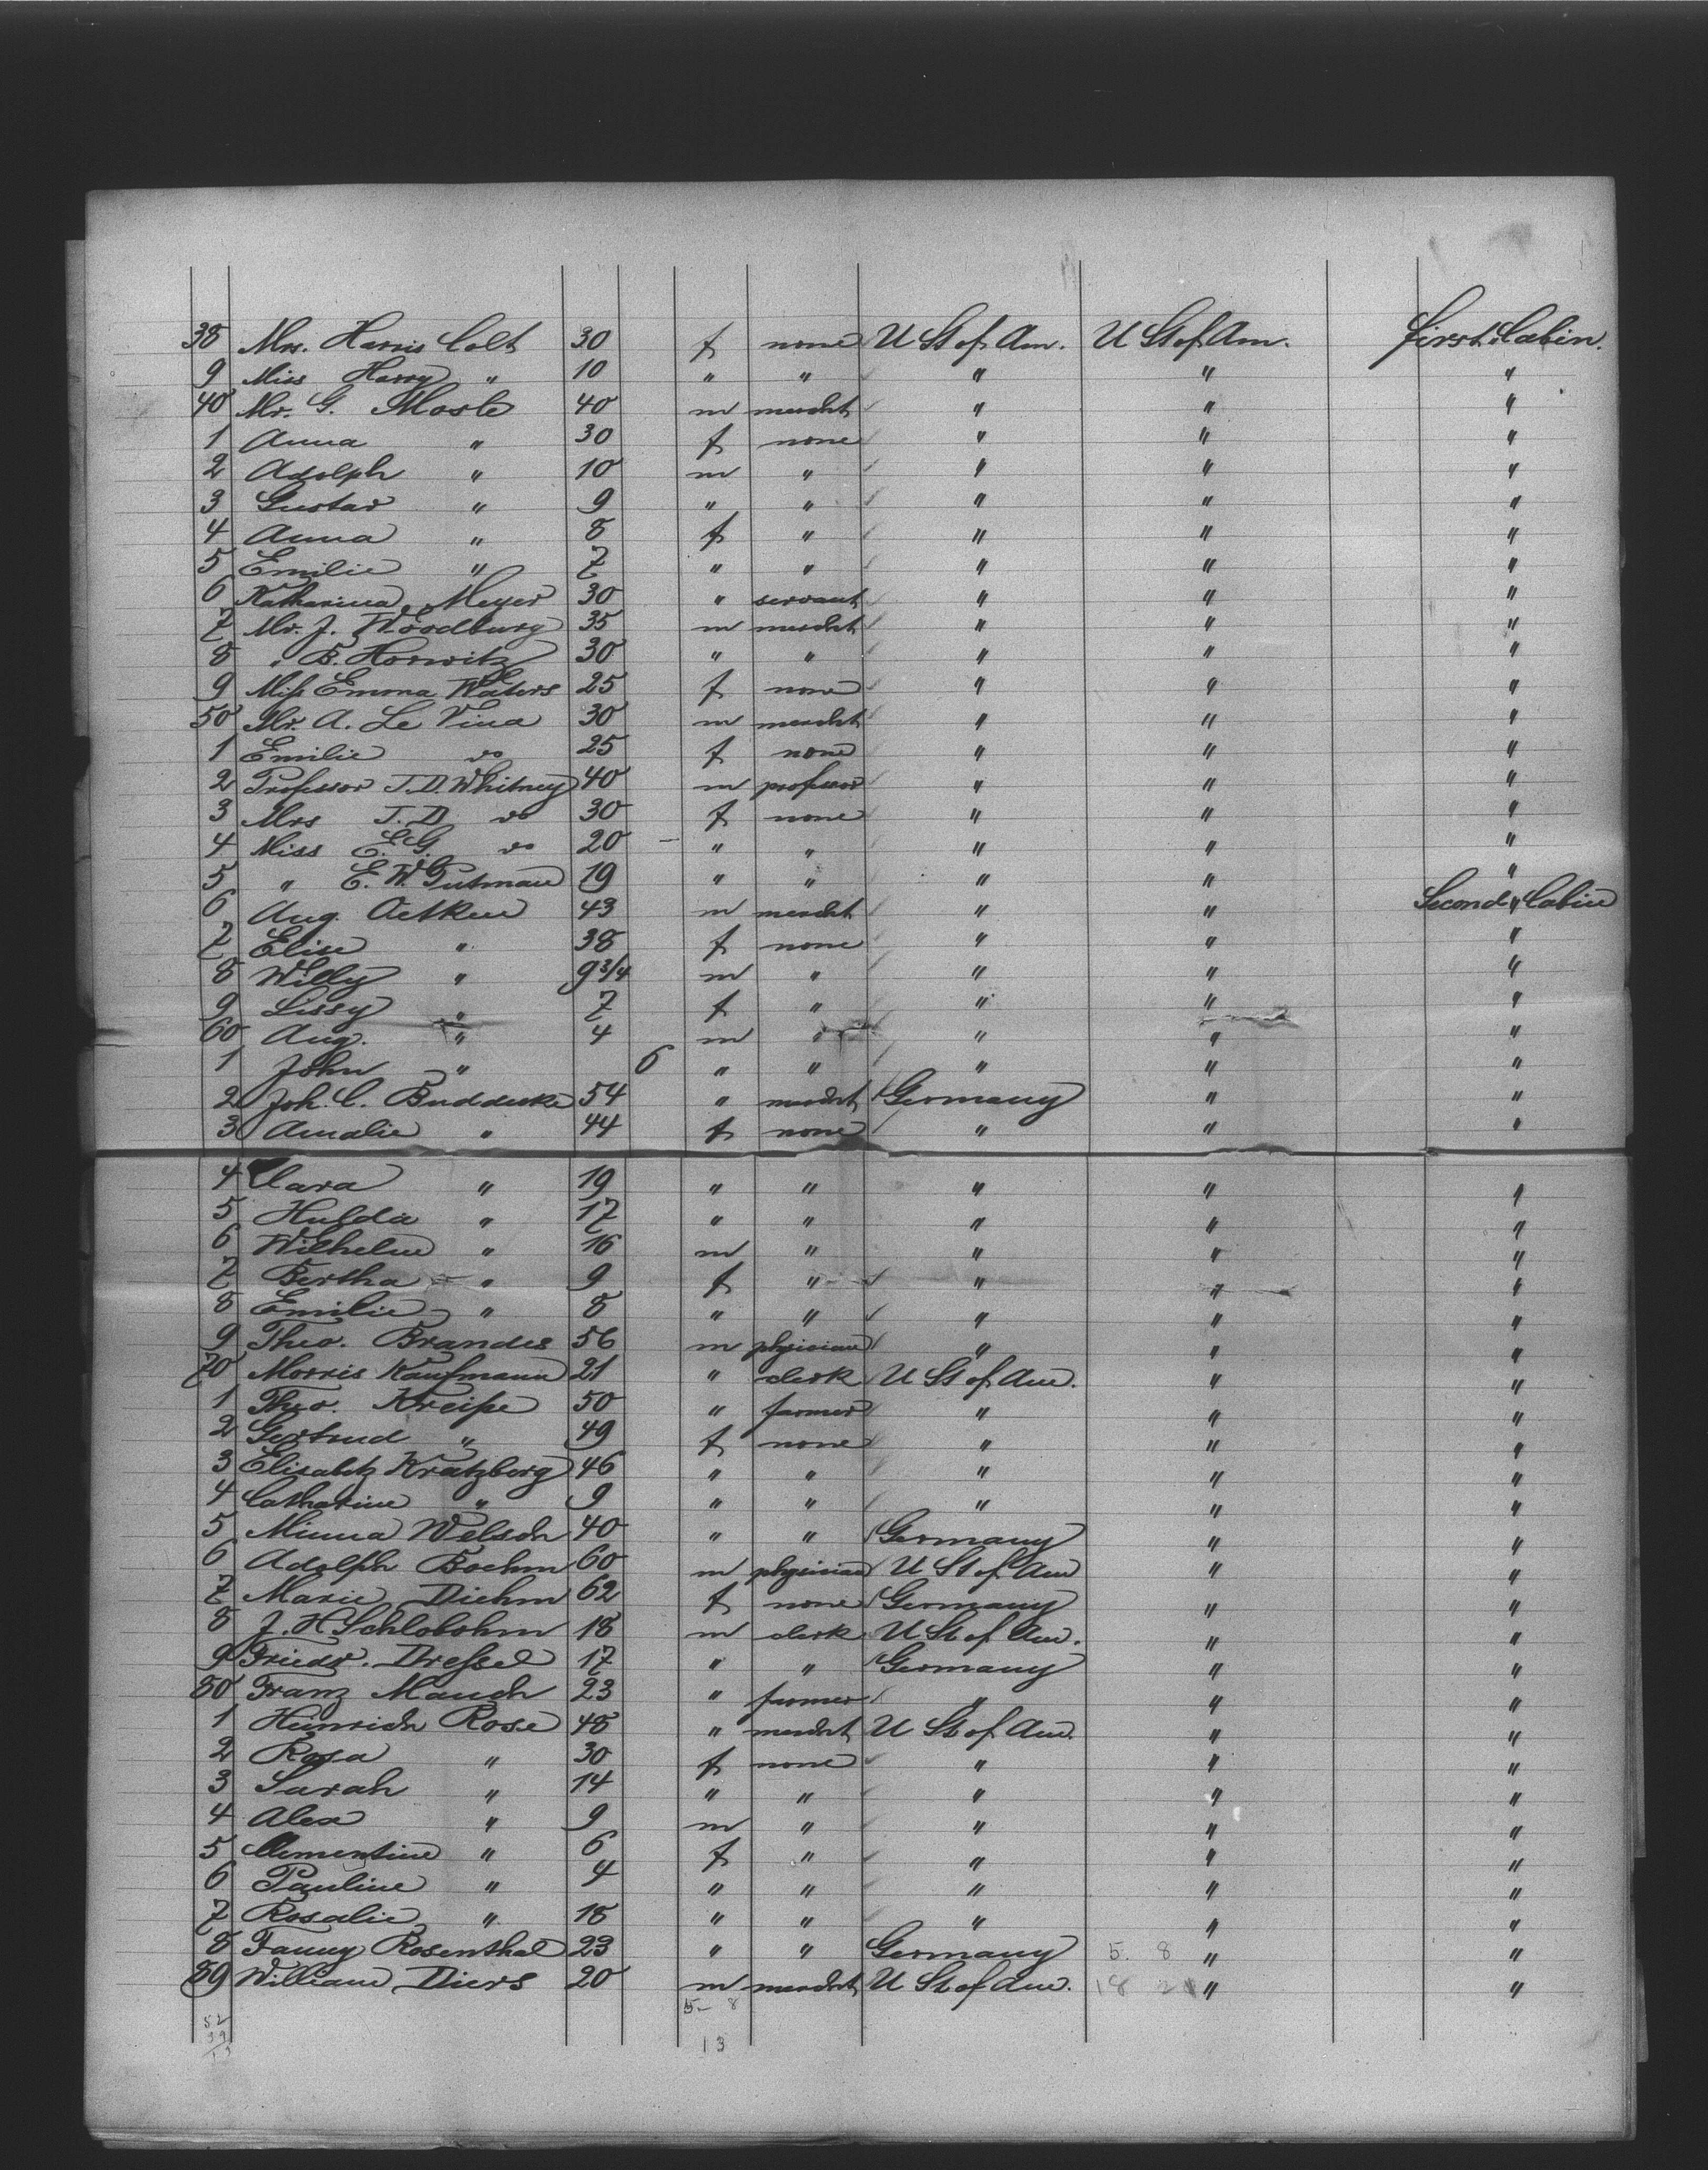 38 Mrs. Harris Colt 30 f none U St of Am. U St of Am. first Cabin.
9 Miss Harry " 10 " " " " "
40 Mr. G. Mosle 40 m mercht " " "
1 Anna " 30 f none " " "
2 Adolph " 10 m " " " "
3 Gustav " 9 " " " " "
4 Anna " 8 f " " " "
5 Emilie " 7 " " " " "
6 Katharina Meyer 30 " servant " " "
7 Mr. J. Woodbury 35 m mercht " " "
8 " B. Horwitz 30 " " " " "
9 Miss Emma Waters 25 f none " " "
50 Mr. A. Le Vina 30 m mercht " " "
1 Emilie do 25 f none " " "
2 Professor J. D. Whitney 40 m professor " " "
3 Mrs J. D do 30 f none " " "
4 Miss E. G. do 20 " " " " "
5 " E. W. Putman 19 " " " " "
6 Aug. Oetken 43 m mercht " " Second Cabin
7 Elise " 38 f none " " "
8 Willy " 9 3/4 m " " " "
9 Lissy " 7 f " " " "
60 Aug. " 4 m " " " "
1 John " 6 " " " " "
2 Joh. C. Buddecke 54 " mercht Germany " "
3 Amalie " 44 f none " " "
4 Clara " 19 " " " " "
5 Hulda " 17 " " " " "
6 Wilhelm " 16 m " " " "
7 Bertha " 9 f " " " "
8 Emilie " 8 " " " " "
9 Theo. Brandes 56 m physician " " "
70 Morris Kaufmann 21 " clerk U St of Am. " "
1 Theo. Kreiße 50 " farmer " " "
2 Gertrud " 49 f none " " "
3 Elisabetz Kratzberg 46 " " " " "
4 Catharine " 9 " " " " "
5 Minna Welsch 40 " " Germany " "
6 Adolph Boehm 60 m physician U St of Am " "
7 Marie Diehm 62 f none Germany " "
8 J. H. Schlobohm 18 m clerk U St of Am. " "
9 Friedr. Dreßel 17 " " Germany " "
80 Franz Mauch 23 " farmer " " "
1 Heinrich Rose 48 " mercht U St of Am. " "
2 Rosa " 30 f none " " "
3 Sarah " 14 " " " " "
4 Alex " 9 m " " " "
5 Clementine " 6 f " " " "
6 Pauline " 4 " " " " "
7 Rosalie " 18 " " " " "
8 Fanny Rosenthal 23 " " Germany 5. 8 " "
89 William Diers 20 m mercht U St of Am. 18 " "
52 5- 8
39
13 13